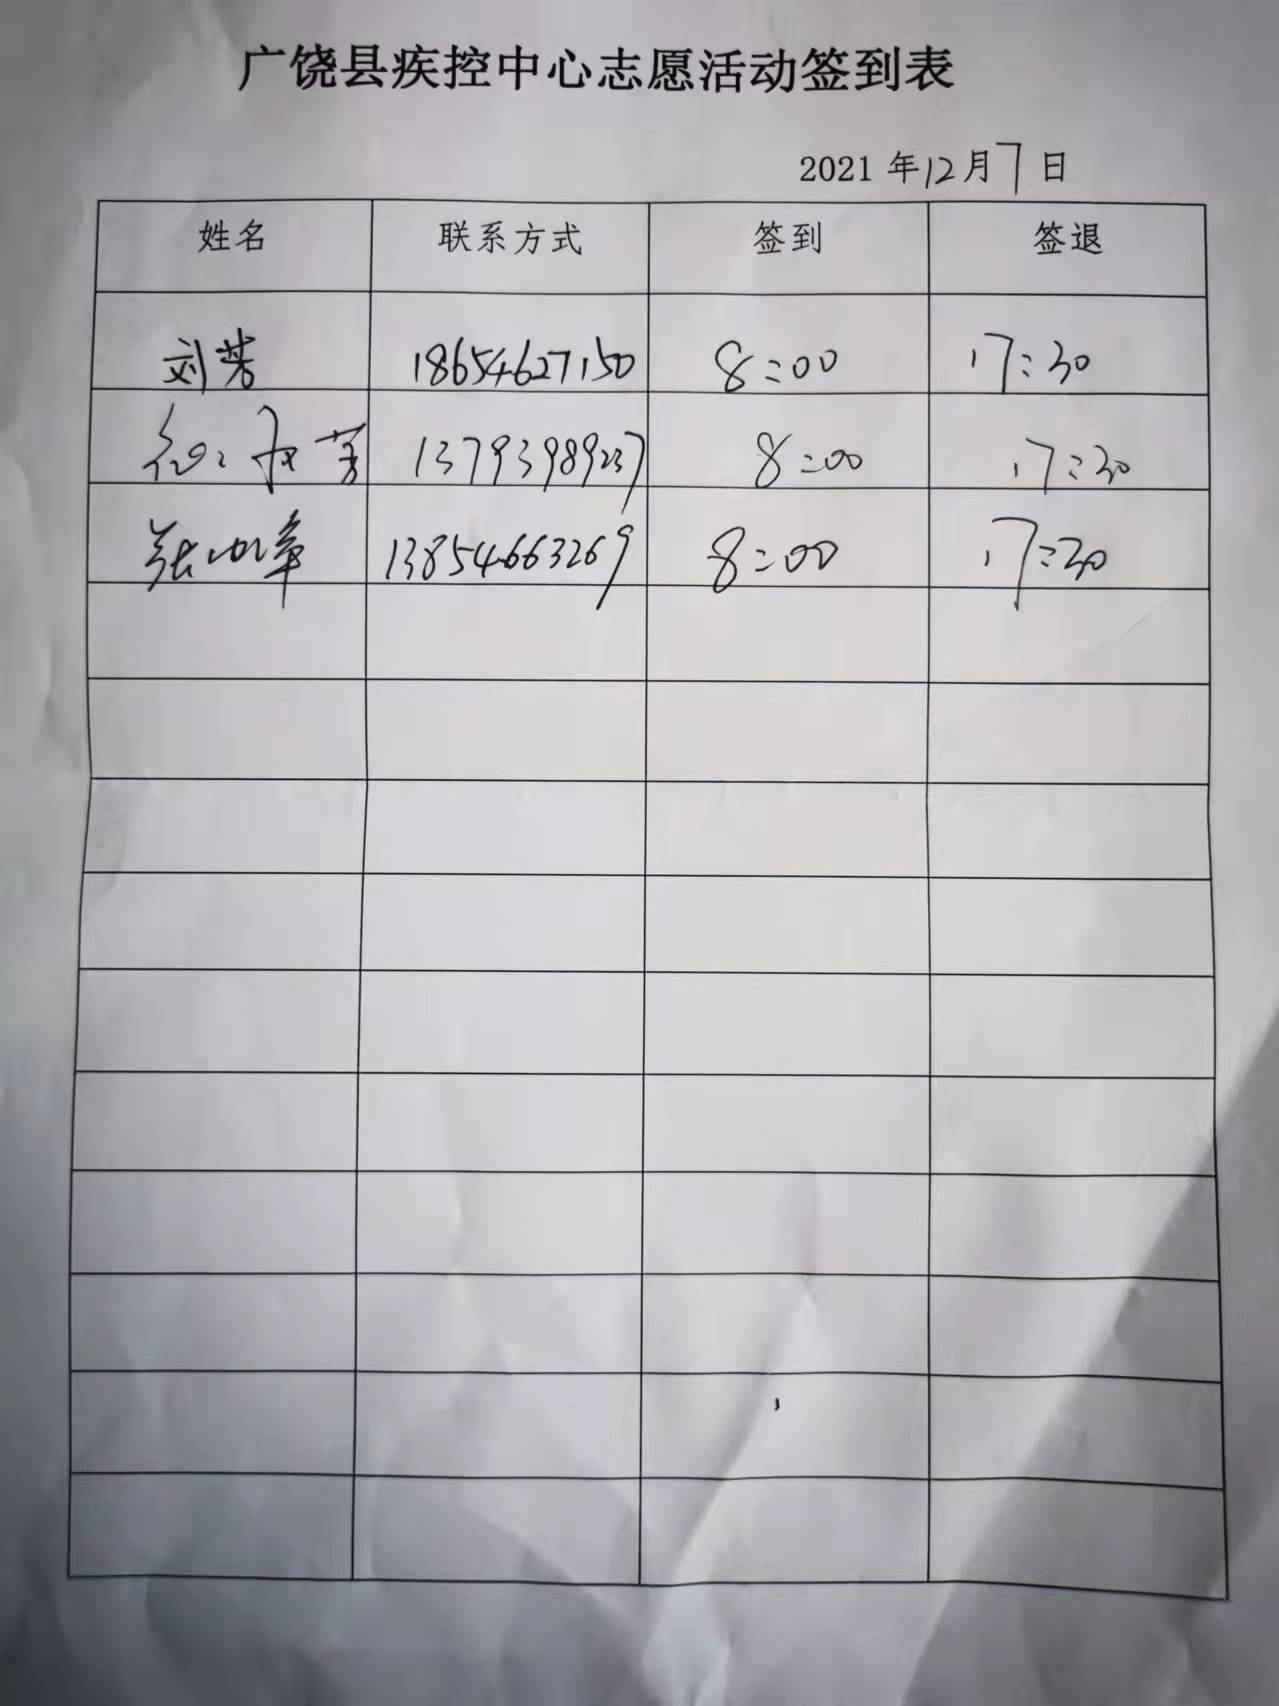 广饶县疾控中心志愿活动签到表
2021 年 12 月 7 日
姓名 联系方式 签到 签退
刘芳 18654627150 8:00 17:30
芳 13793989237 8:00 17:30
张 13854663269 8:00 17:30